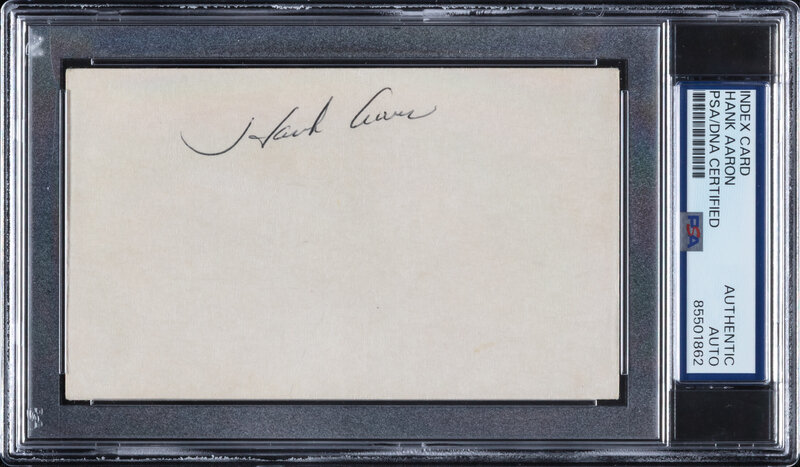 Hank Aaron
INDEX CARD
HANK AARON
PSA/DNA CERTIFIED
PSA
AUTHENTIC
AUTO
85501862